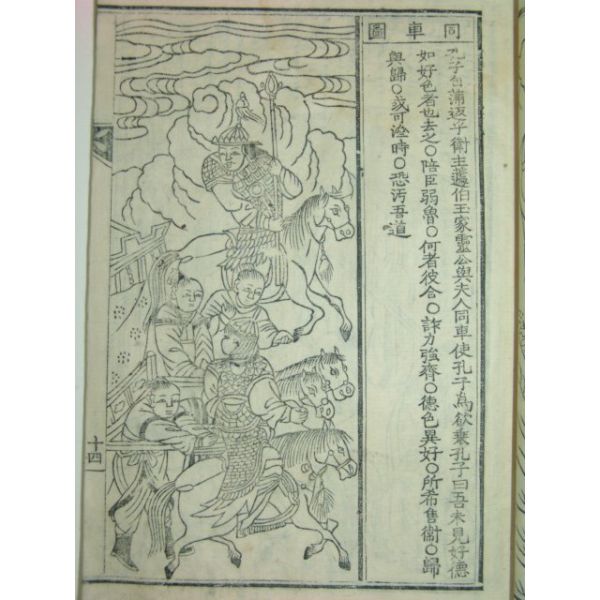 同車圖
孔子自蒲返乎衛主蘧伯玉家靈公與夫人同車使孔子爲歆乗孔子曰吾未見好德
如好色者也去之○陪臣弱魯○何者彼合○詐力強齊○德色異好○所希售衛○歸
與歸○或可澄時○恐汚吾道
十四